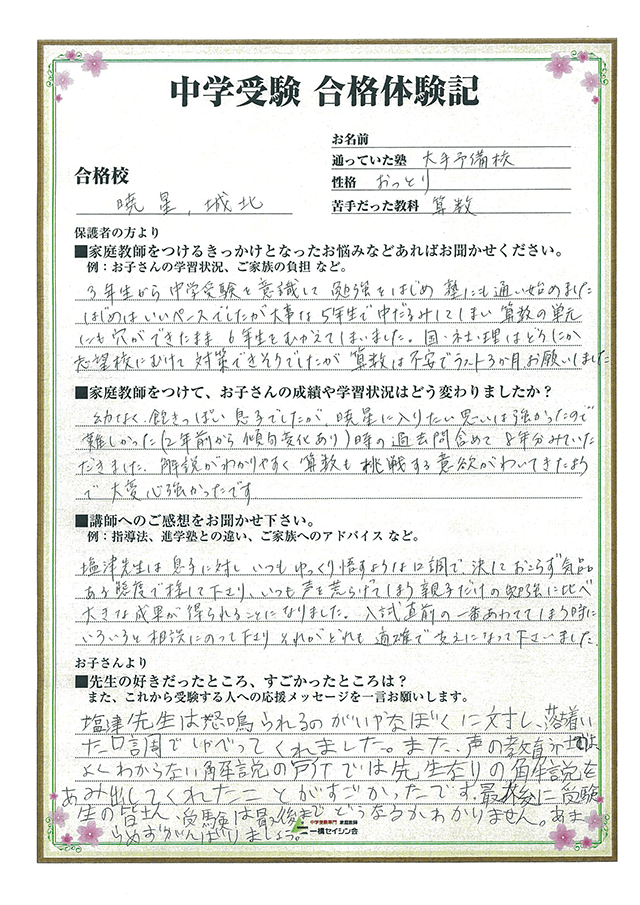 中学受験 合格体験記
お名前
通っていた塾 大手予備校
合格校
性格 おっとり
暁星, 城北
苦手だった教科 算数
保護者の方より
■家庭教師をつけるきっかけとなったお悩みなどあればお聞かせください。
例：お子さんの学習状況、ご家族の負担 など。
3年生から中学受験を意識して 勉強をはじめ 塾にも通い始めました
はじめはいいペースでしたが大事な5年生で中だるみしてしまい 算数の単元
にも穴ができたまま 6年生をむかえてしまいました。国・社・理はどうにか
志望校にむけて 対策できそうでしたが 算数は不安でラスト3か月お願いしました
■家庭教師をつけて、お子さんの成績や学習状況はどう変わりましたか？
幼なく、飽きっぽい息子でしたが、暁星に入りたい思いは強かったので
難しかった(2年前から傾向変化あり)時の過去問含めて 8年分みていた
だきました、解説がわかりやすく 算数も 挑戦する意欲がわいてきたよう
で大変心強かったです
■講師へのご感想をお聞かせ下さい。
例：指導法、進学塾との違い、ご家族へのアドバイス など。
塩津先生は息子に対し いつもゆっくり悟すような口調で、決しておこらず気品
ある態度で接して下さり、いつも声を荒らげてしまう親子だけの勉強に比べ
大きな成果が得られることになりました。入試直前の一番あわててしまう時に
いろいろと相談にのって下さり それがどれも 適確で支えになって下さいました.
お子さんより
■先生の好きだったところ、すごかったところは？
また、これから受験する人への応援メッセージを一言お願いします。
塩津先生は怒鳴られるのがいやなぼくに対し、落ち着い
た口調でしゃべってくれました。また、声の教育社では、
よくわからない解説の所では先生なりの解説を
あみ出してくれたことがすごかったです。最後に受験
生の皆さん、受験は最後までどうなるかわかりません。あき
らめずがんばりましょう。
中学受験専門 家庭教師
一橋セイシン会